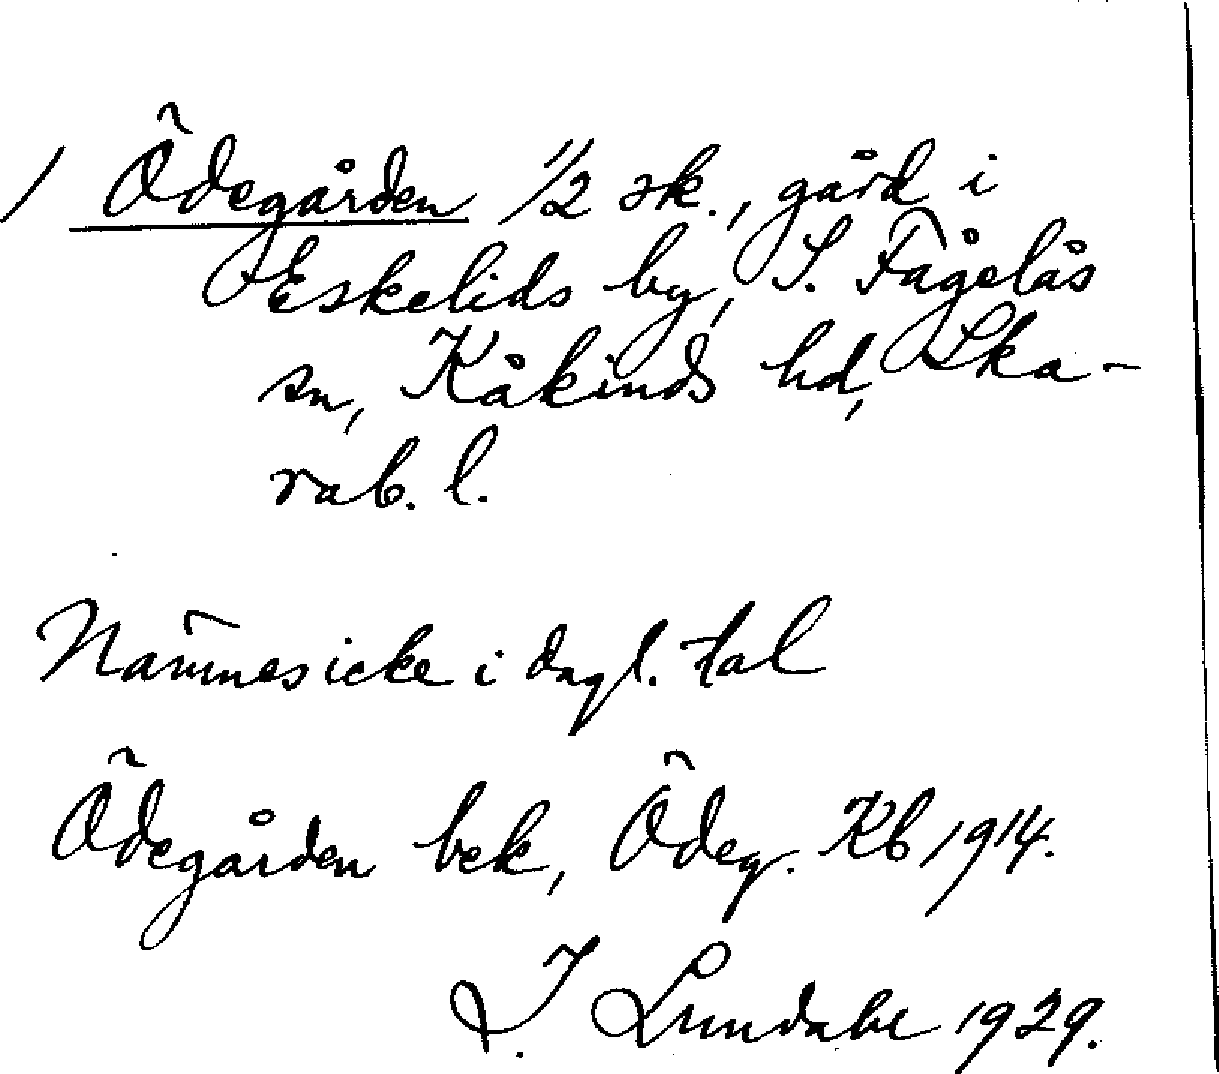 / Ödegården 1/2 sk., gård i
Eskelids by, S. Fågelås
sn, Kåkinds hd, Ska-
rab. l.
Nämnes icke i dagl. tal
Ödegården bek, Ödeg. Kb 1914.
I. Lundahl 1929.